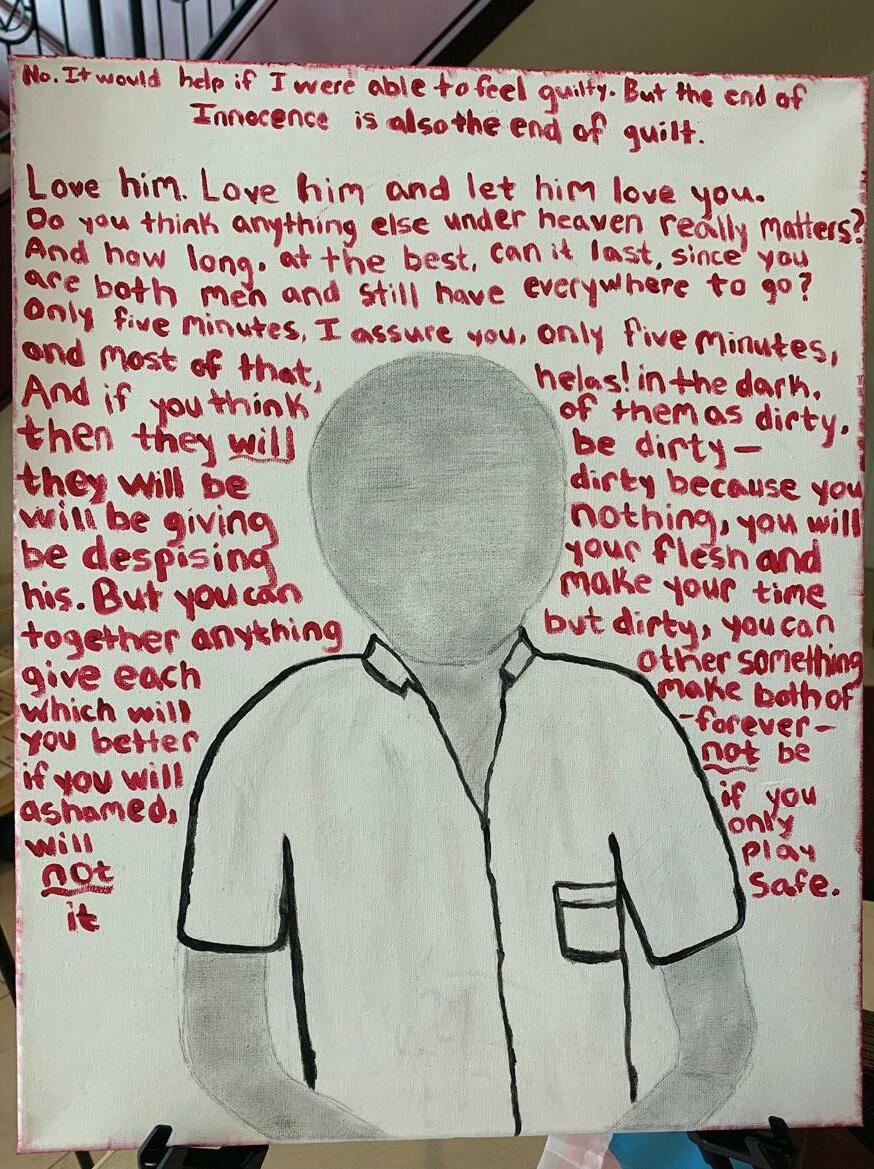 No. It would help if I were able to feel guilty. But the end of
Innocence is also the end of guilt.
Love him. Love him and let him love you.
Do you think anything else under heaven really matters?
And how long, at the best, can it last, since you
are both men and still have everywhere to go?
Only five minutes, I assure you, only five minutes,
and most of that, helas! in the dark.
And if you think of them as dirty,
then they will be dirty—
they will be dirty because you
will be giving nothing, you will
be despising your flesh and
his. But you can make your time
together anything but dirty, you can
give each other something
which will make both of
you better -forever-
if you will not be
ashamed, if you
will only
not play
it safe.